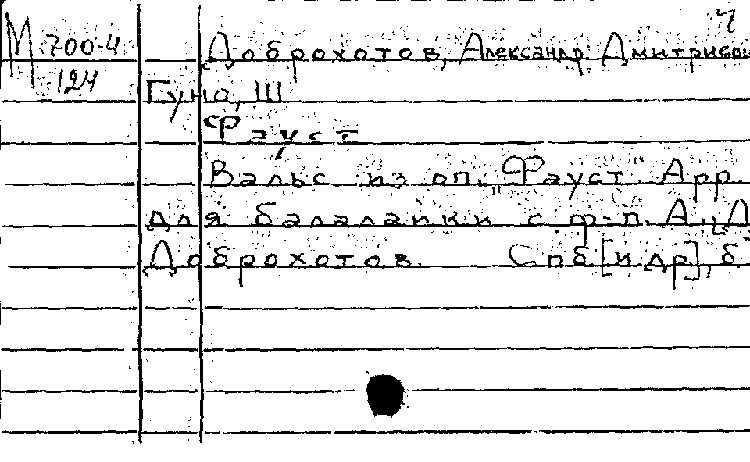 4
М 700-4 Доброхотов, Александр Дмитриеви
124
Гуно, Ш
Фауст
Вальс из оп. "Фауст" Арр
для балалайки с ф-п. А. Д
Доброхотов. Спб [и др], б